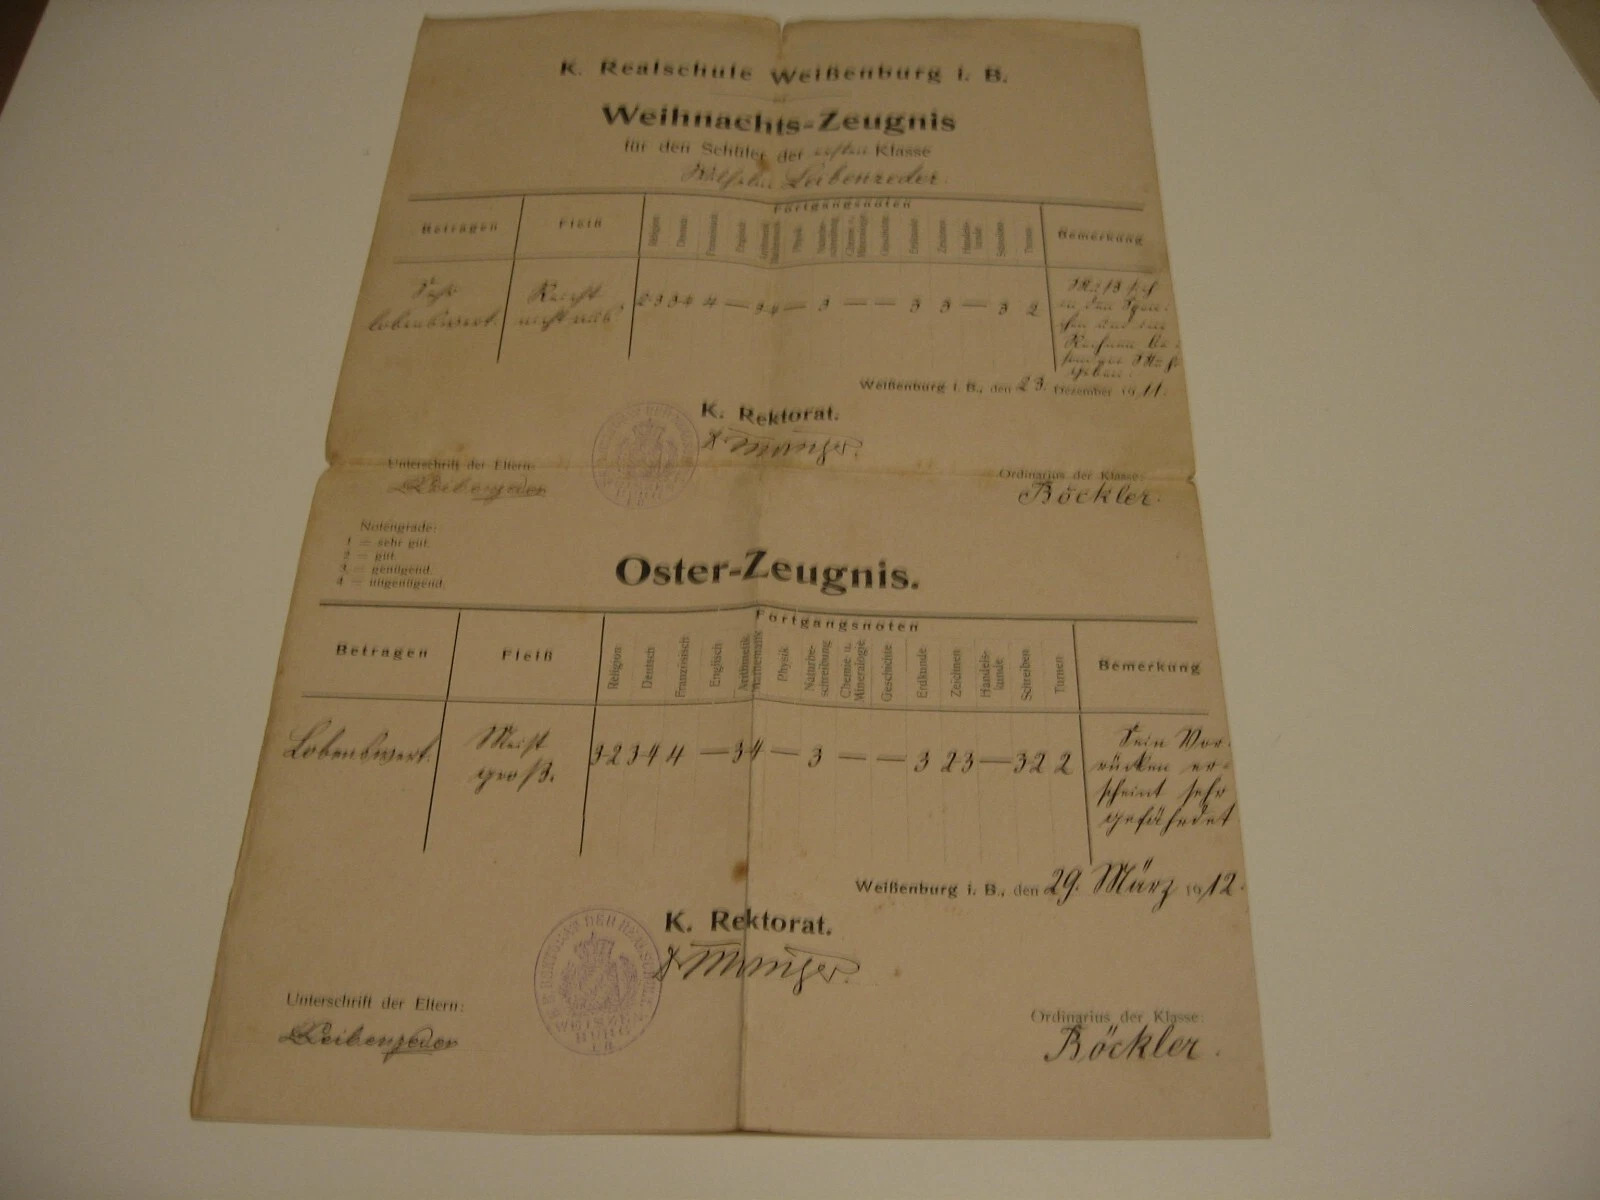 K. Realschule Weißenburg i. B.
Weihnachts-Zeugnis
für den Schüler der ersten Klasse
Wilhelm Leibenzeder.
Betragen
Fleiß
Fortgangsnoten
Religion
Deutsch
Französisch
Englisch
Arithmetik
Mathematik
Physik
Naturbe-
schreibung
Chemie u.
Mineralogie
Geschichte
Erdkunde
Zeichnen
Handels-
kunde
Schreiben
Turnen
Bemerkung
Sehr
lobenswert.
Reicht
nicht aus
2-3 3-4 4 — 3-4 — 3 — — 3 3 — 3 2
Muß sich
in den
und im
Rechnen be-
geben.
Weißenburg i. B., den 23. Dezember 1911.
K. Rektorat.
Unterschrift der Eltern:
Leibenzeder
Ordinarius der Klasse:
Böckler.
Notengrade:
1 = sehr gut.
2 = gut.
3 = genügend.
4 = ungenügend.
Oster-Zeugnis.
Betragen
Fleiß
Fortgangsnoten
Religion
Deutsch
Französisch
Englisch
Arithmetik
Mathematik
Physik
Naturbe-
schreibung
Chemie u.
Mineralogie
Geschichte
Erdkunde
Zeichnen
Handels-
kunde
Schreiben
Turnen
Bemerkung
Lobenswert.
Meist
groß.
3-2 3-4 4 — 3-4 — 3 — — 3 2-3 — 3-2 2
Sein Vor-
rücken er-
scheint sehr
gefährdet
Weißenburg i. B., den 29. März 1912.
K. Rektorat.
Unterschrift der Eltern:
Leibenzeder
Ordinarius der Klasse:
Böckler.